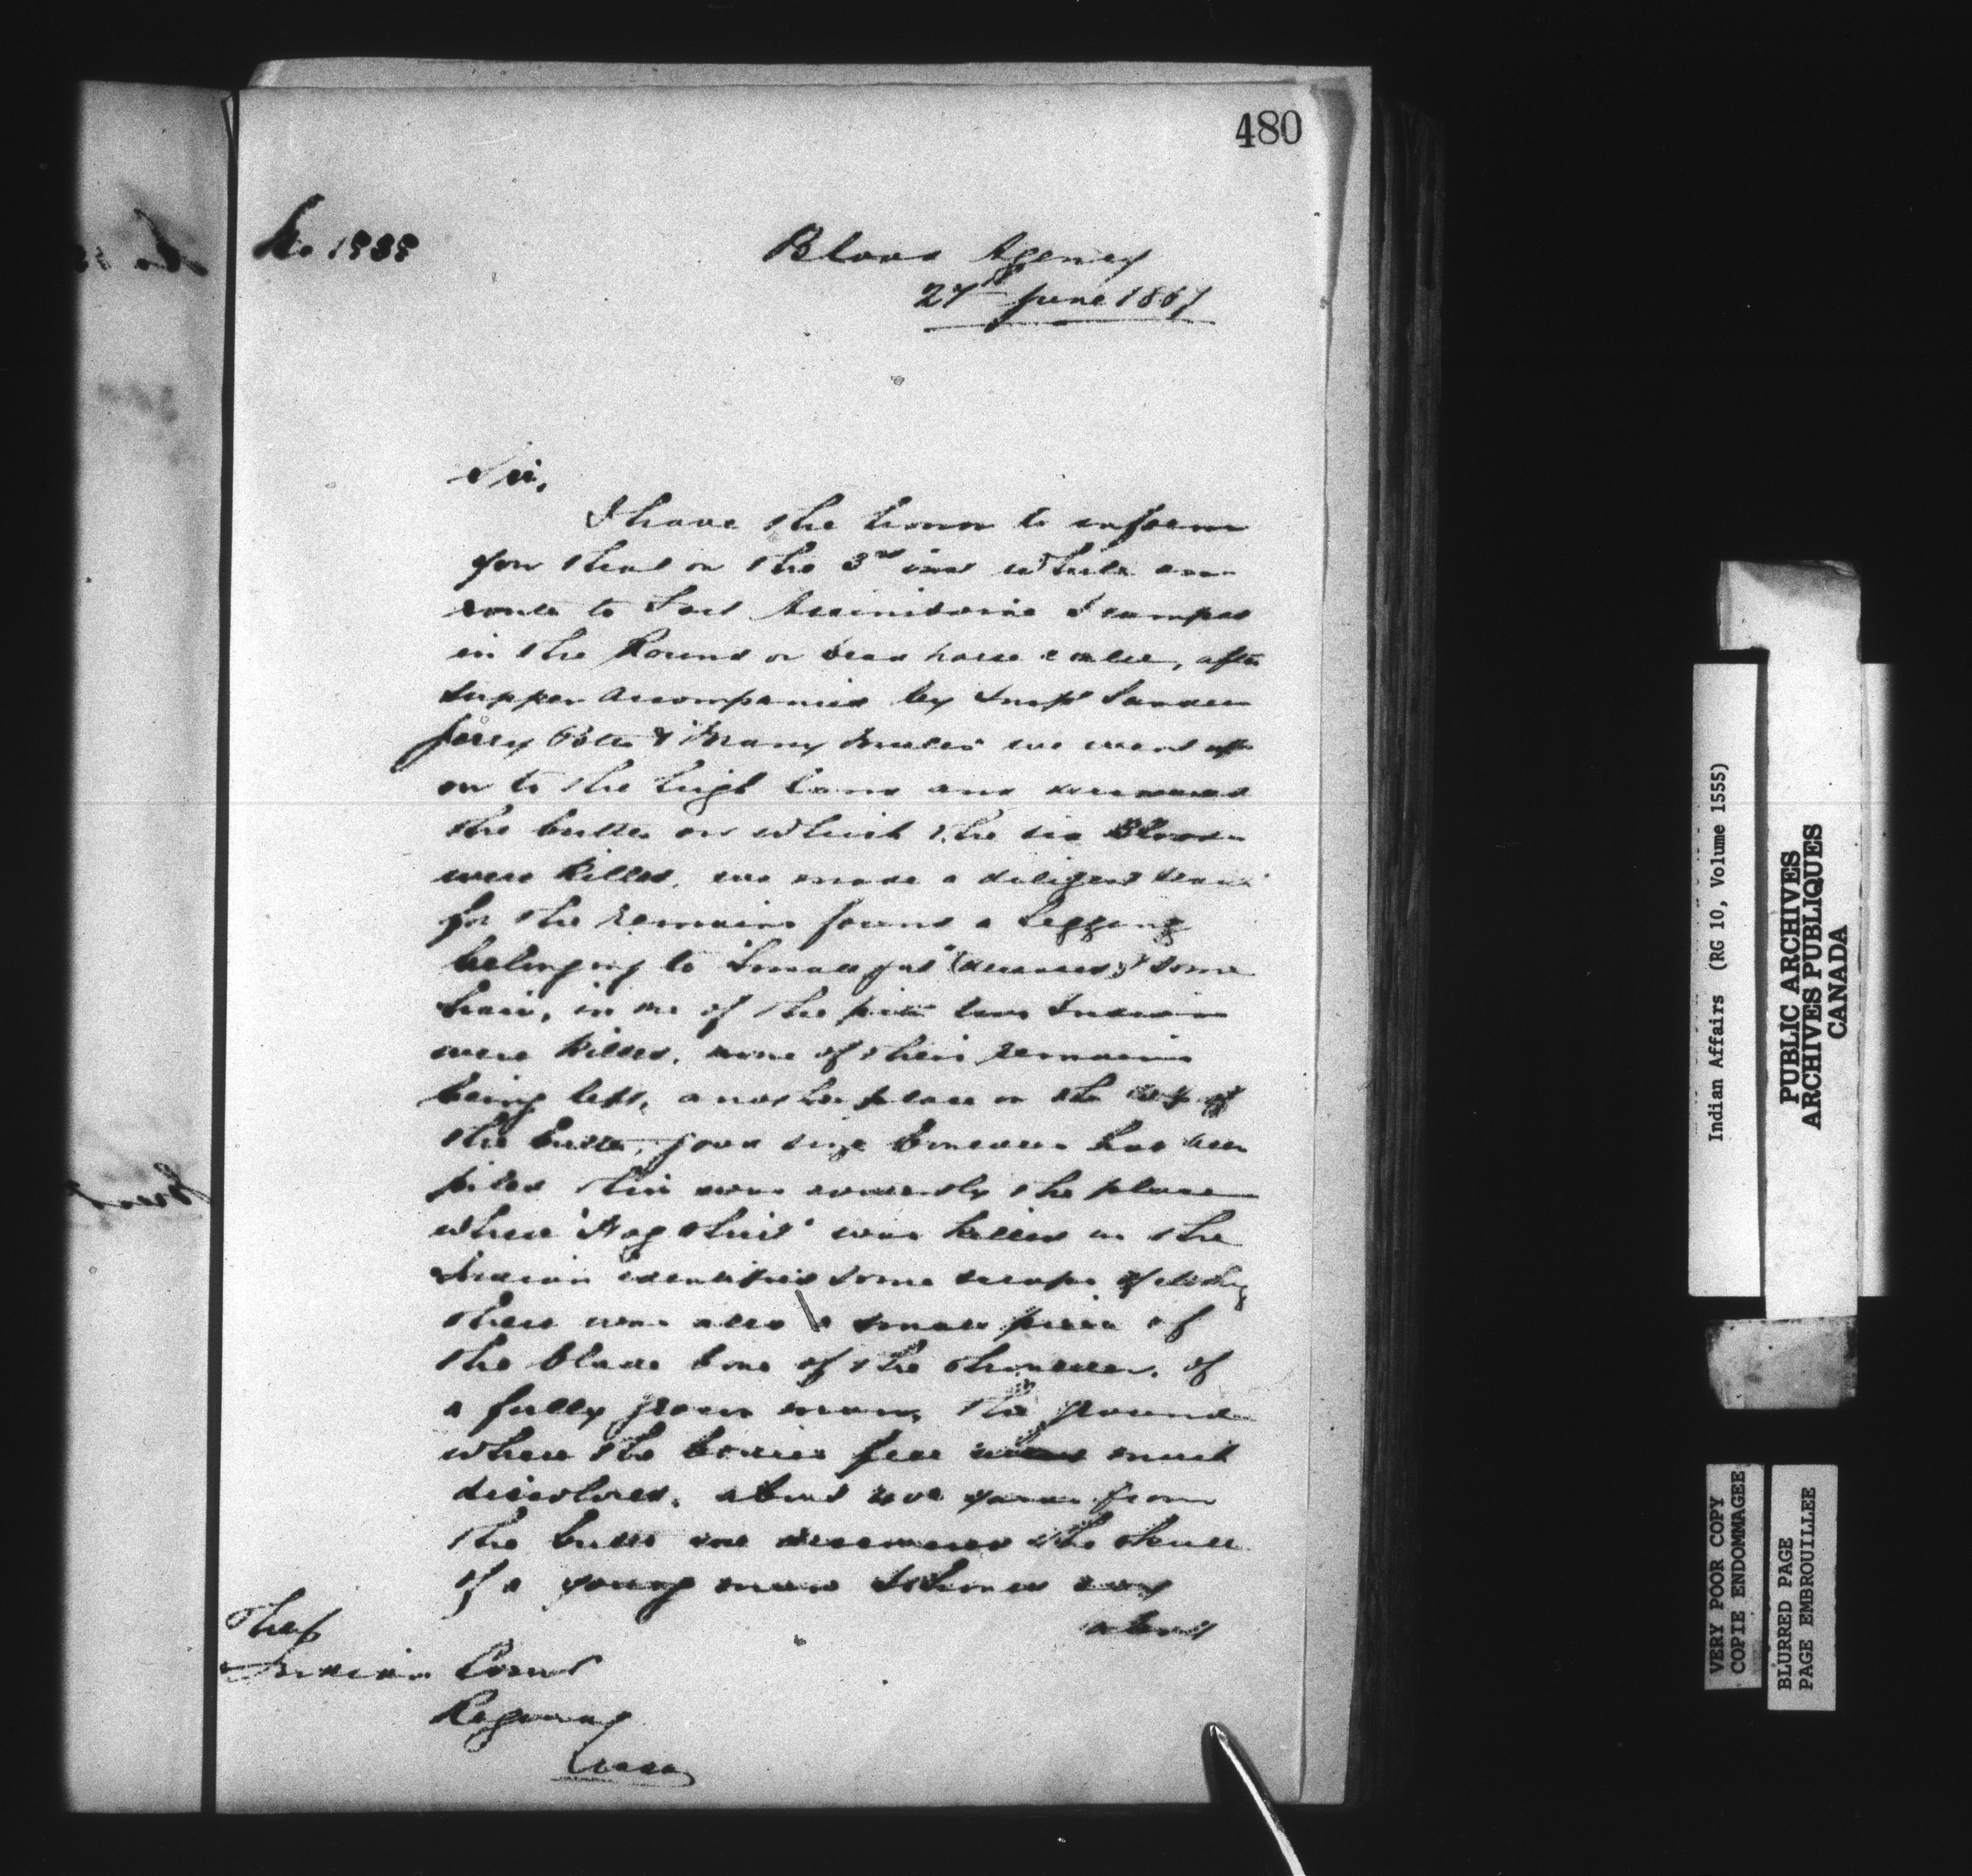 480
No 1838
Blood Agency
27th June 1887
Sir,
I have the honor to inform
you that on the 3rd inst while en
route to Fort Assiniboine I camped
in the Round or Dead horse coulee, after
supper accompanied by Insp Sanders
Jerry Potts & Many Mules we went up
on to the high land and discovered
the butte on which the six Bloods
were killed, we made a diligent search
for the remains found a legging
belonging to (deceased) & some
hair, in one of the pits two Indians
were killed, none of their remains
being left, another place on the top of
the butte, good size boulders had been
piled this was evidently the place
where was killed as the
Indian identified some scraps of clothing
there was also a small piece of
the blade bone of the shoulder, of
a fully grown man, the ground
where the bodies fell much
discolored, about yards from
the butte we discovered the skull
of a young man I should say
about
The
Indian Comr
Regina
Assa
Indian Affairs (RG 10, Volume 1555)
PUBLIC ARCHIVES
ARCHIVES PUBLIQUES
CANADA
VERY POOR COPY
COPIE ENDOMMAGEE
BLURRED PAGE
PAGE EMBROUILLEE